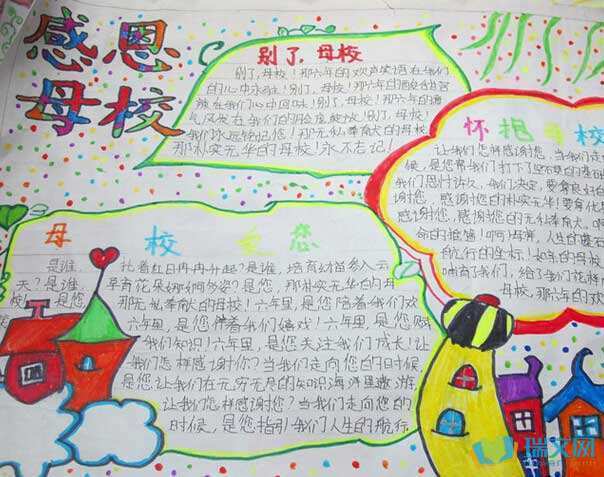 感恩
母校
别了，母校
别了，母校！那六年的欢声笑语在我们
的心中永驻！别了，母校！那六年的
在我们心中回味！别了，母校！那六年的
在我们的脸庞绽放！别了，母校！
我们永远铭记您！那无私奉献的母校！
那朴实无华的母校！永不忘记！
怀抱母校
让我们怎样感谢您，当我们走
候，是您帮我们打下了坚不可的基
我们思归许久，我们决定，要拿良好的
感谢您，感谢您的朴实无华！要拿
感谢您，感谢您的无私奉献，啊
命的摇篮！啊！母亲，人生的基石
自航行的坐标！如东的母校
哺育我们，给了我们花样
母校，那六年的欢
母校 您
是谁，托着红日冉冉升起？是谁，培育幼苗参入云
天？是谁，孕育花朵婀娜多姿？是您，那朴实无华的母
校！是您，那无私奉献的母校！六年里，是您陪着我们欢
六年里，是您伴着我们嬉戏！六年里，是您赋
我们知识！六年里，是您关注我们成长！让
我们怎样感谢你？当我们走向您的时候，
是您让我们在无穷无尽的知识海洋里遨游，
让我们怎样感谢您？当我们走向您的
时候，是您指引我们人生的航行
瑞文网